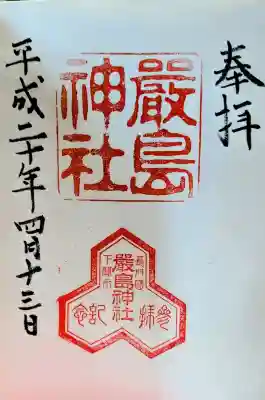 奉拝
嚴島
神社
長門國
嚴島神社
下關市
參拝
記念
平成二十年四月十三日